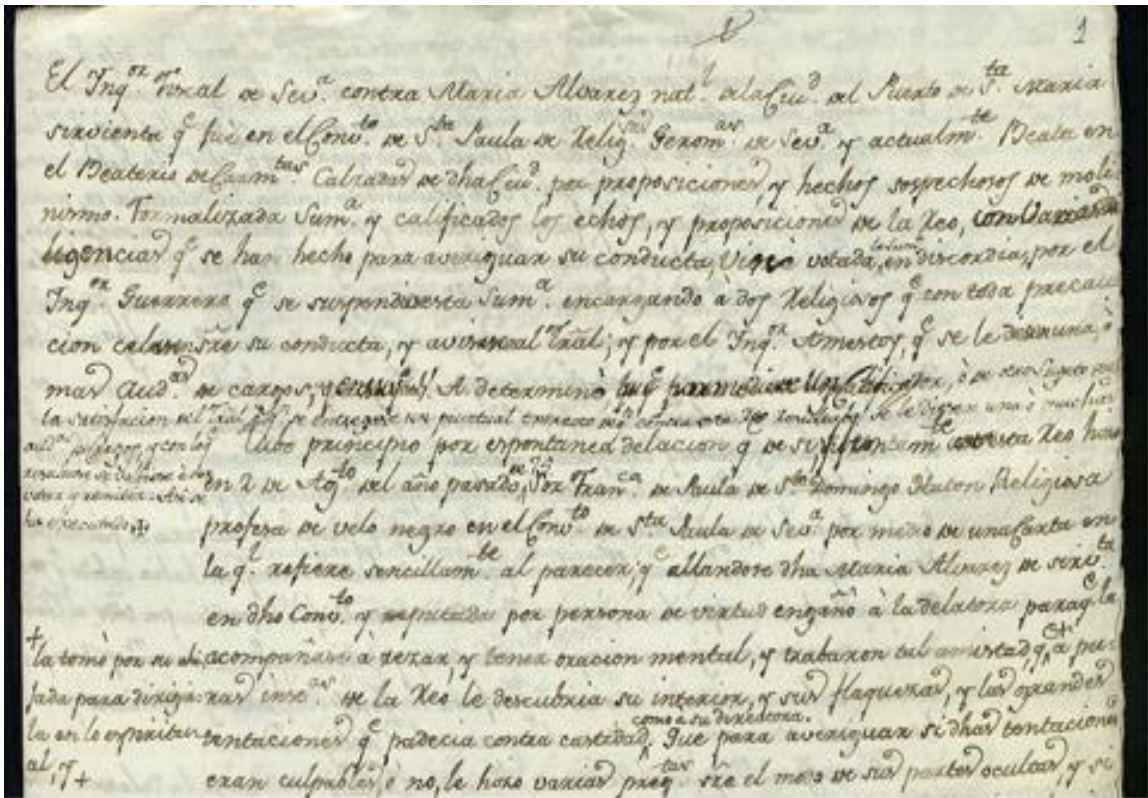 1
El Inqᵒʳ Fiscal de Sevᵃ. contra Maria Alvarez natˡ. de la Ciuᵈ. del Puerto de Sᵗᵃ Maria
sirvienta qᵉ fue en el Convᵗᵒ. de Sᵗᵃ Paula de Religˢᵃˢ Geromᵃˢ de Sevᵃ y actualmᵗᵉ. Beata en
el Beaterio de Carmᵗᵃˢ Calzadas de dha Ciuᵈ. por proposiciones, y hechos sospechosos de moli-
nismo. Formalizada Sumᵃ. y calificados los echos, y proposiciones de la Reo, con varias di
ligencias qᵉ se han hecho para averiguar su conducta, votada, en discordia, por el
Inqᵒʳ Guerrero qᵉ se suspendiese esta Sumᵃ. encargando à dos Religiosos qᵉ con toda precau
cion celasen sr̃e su conducta, y avisasen al Trãl; y por el Inqᵒʳ Amestoy, qᵉ se le diesen una, ò
mas Audᵃˢ de cargos, y A. determinò, qᵉ por medio de
la satisfacion del Tral se entregue un puntual extracto de lo qᵉ contra esta Reo resultaba, se le diesen una ò muchas
audˢ de cargos, y con lo qᵉ
ha executado.
tubo principio por espontanea delacion qᵉ de sí, y juntamᵗᵉ de esta Reo hizo
en 2 de Agᵗᵒ del año pasado, Sor Franᶜᵃ de Paula de Sᵗᵒ Domingo Religiosa
profesa de velo negro en el Convᵗᵒ de Sᵗᵃ Paula de Sevᵃ por medio de una Carta en
la qˡ. refiere sencillamᵗᵉ al parecer; qᵉ allandose dha Maria Alvarez de sirvᵗᵃ
en dho Convᵗᵒ. y reputada por persona de virtud engañò à la delatora para qᵉ la
acompañase à rezar, y tener oracion mental, y trabaron tal amistad, qᵉ + à pu-
ras instᵃˢ de la Reo le descubria su interior, y sus flaquezas, y las grandes
como a su directora.
tentaciones qᵉ padecia contra castidad, Que para averiguar si dhas tentaciones
eran culpables, ò no, le hizo varias pregᵗᵃˢ sr̃e el modo de sus partes ocultas, y si
+ la tomò por su ahi
jada para dirigir
la en lo espiritu
al, y +